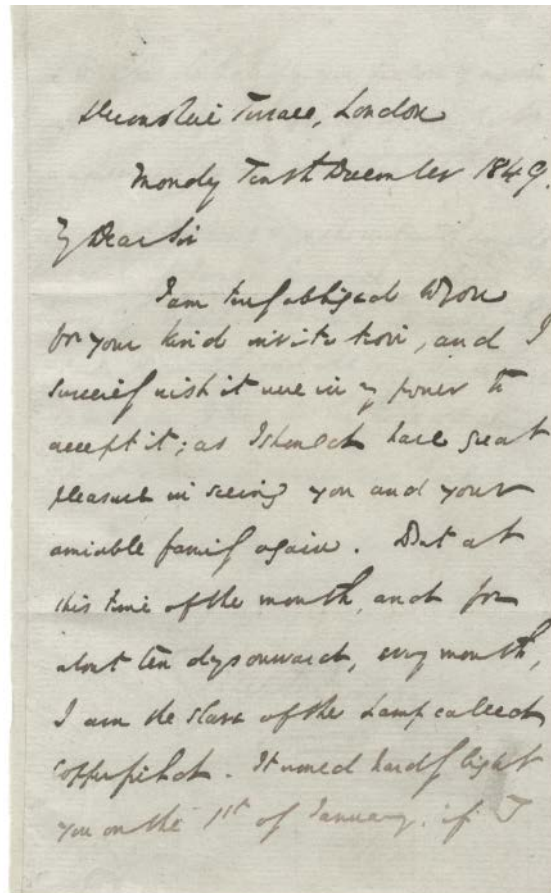 Devonshire Terrace, London
Monday Tenth December 1849.
My Dear Sir
I am truly obliged to you
for your kind invitation, and I
sincerely wish it were in my power to
accept it; as I should have great
pleasure in seeing you and your
amiable family again. But at
this time of the month, and for
about ten days onward, every month,
I am the slave of the Lamp called
Copperfield. It would hardly light
you on the 1st of January, if I